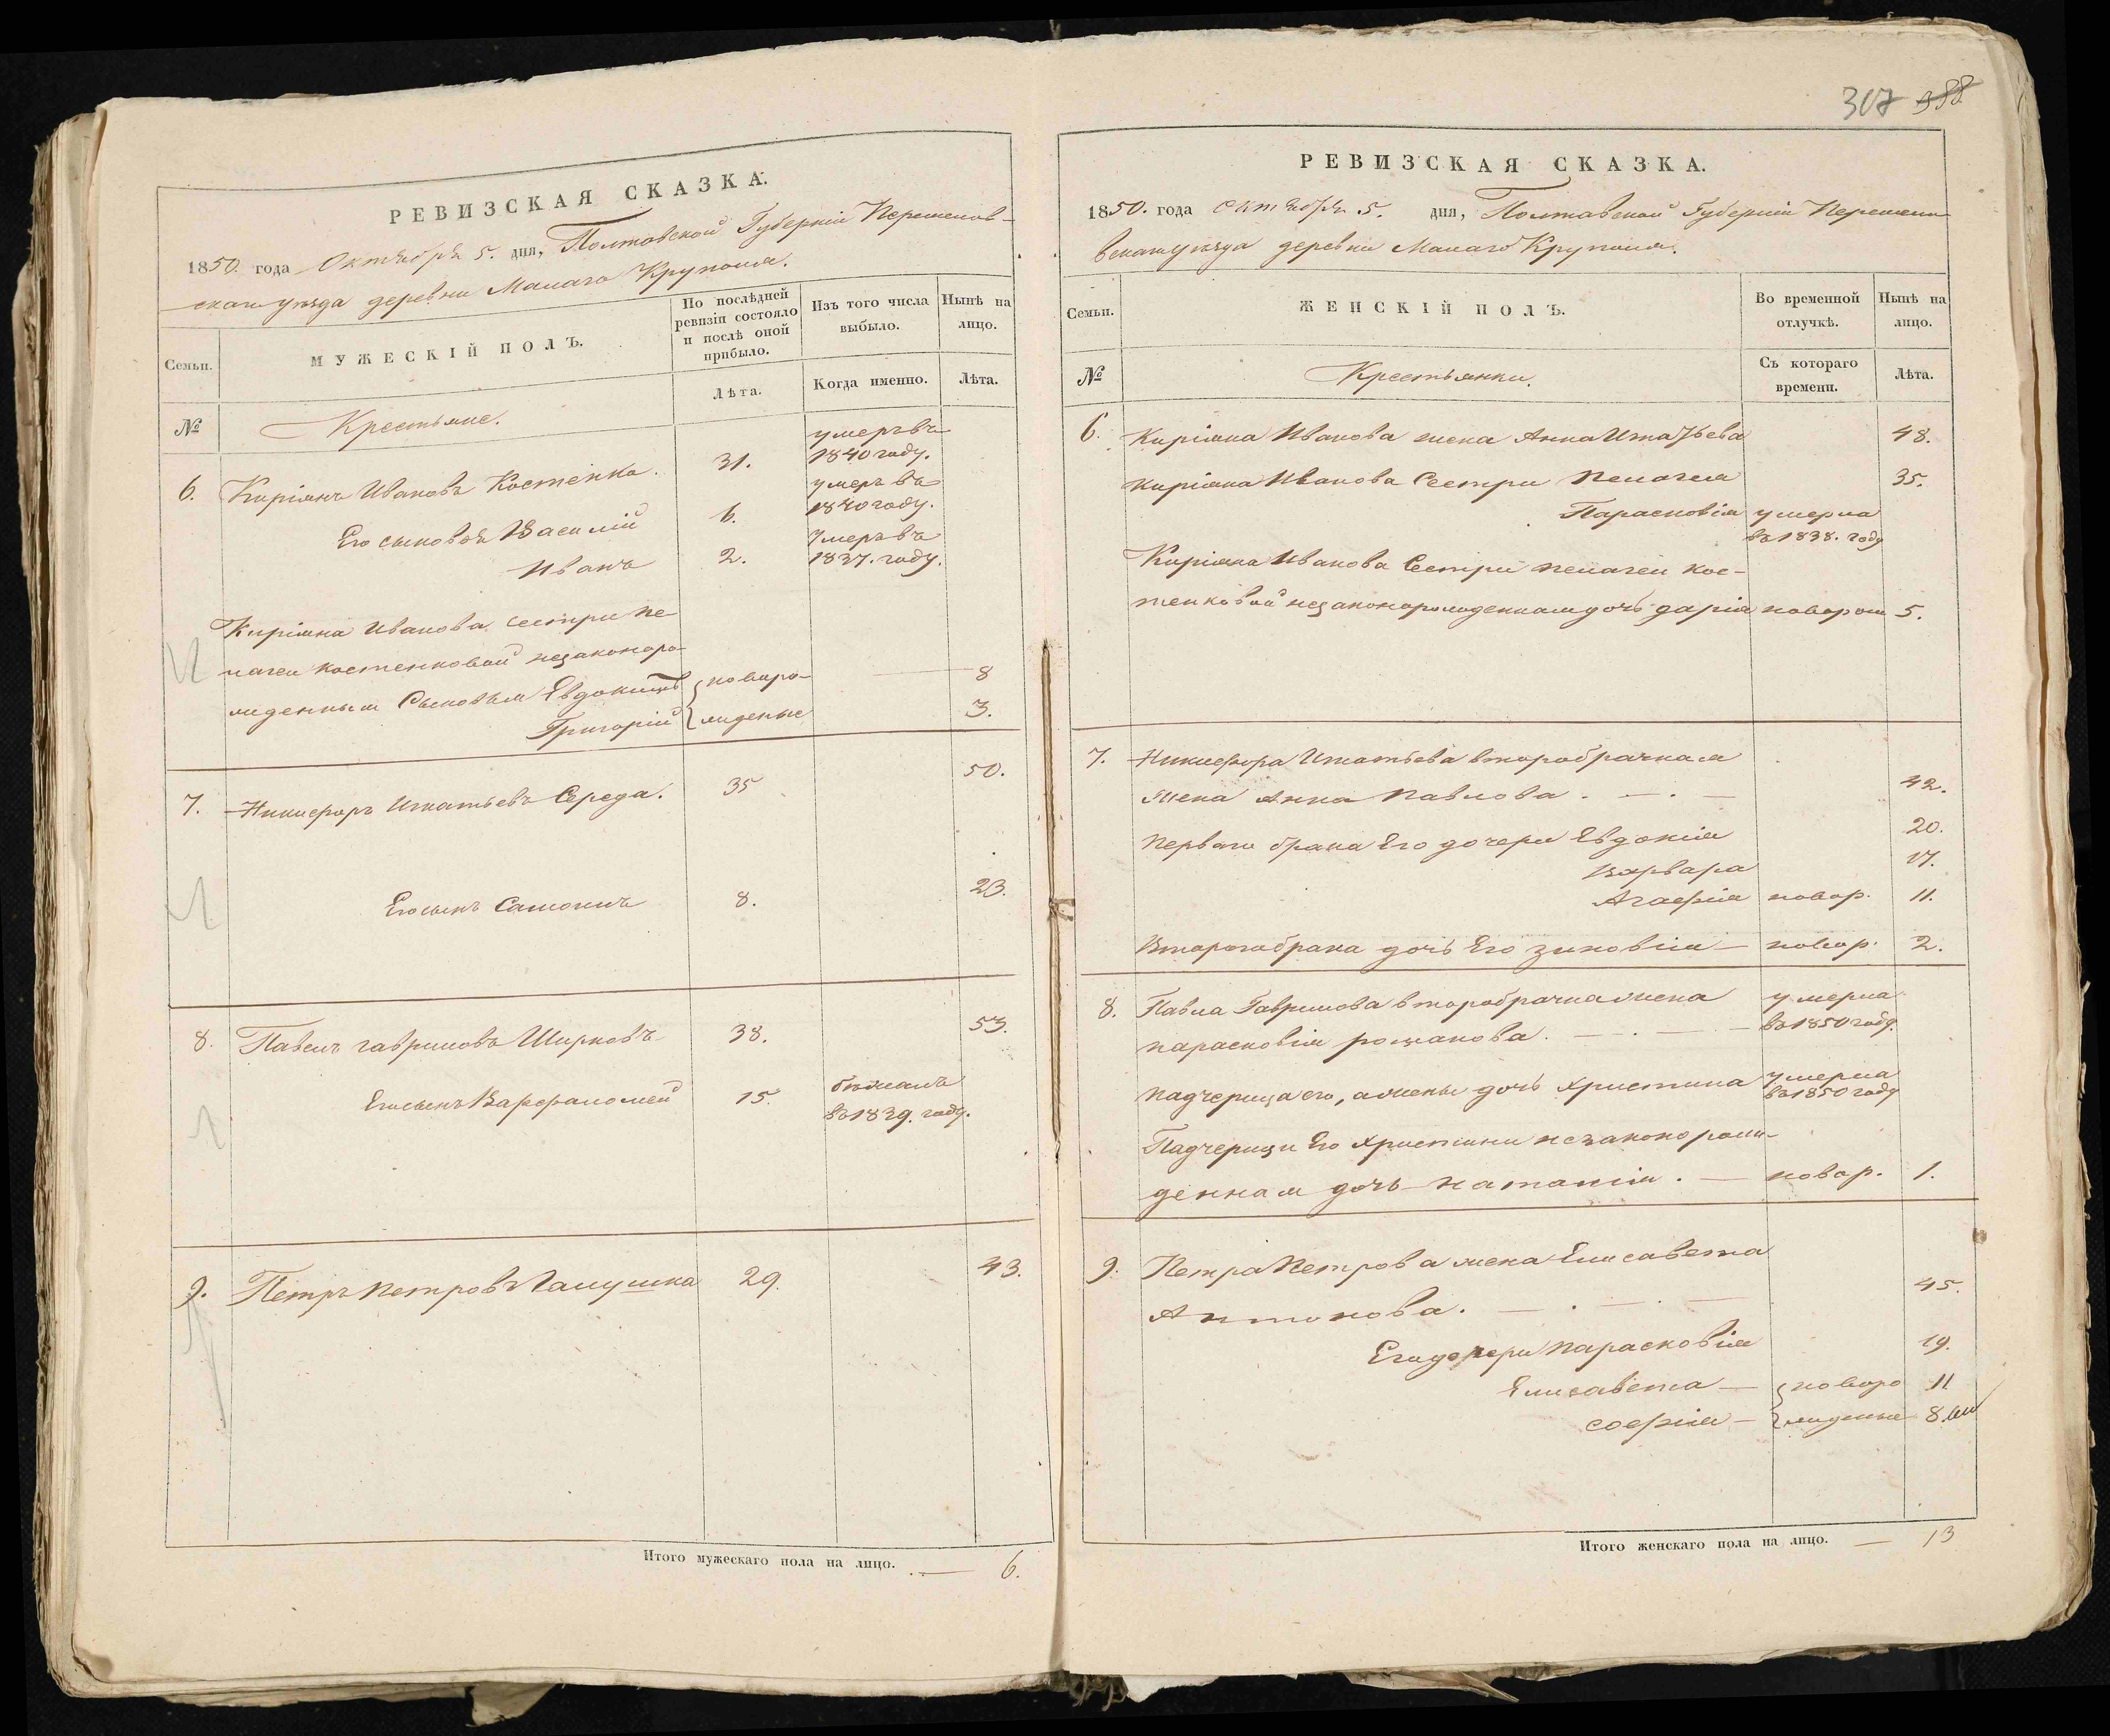 РЕВИЗСКАЯ СКАЗКА.
1850. года Октября 5. дня, Полтавской Губерніи Переяслов-
скаго уѣзда деревни Малаго Крупола.
Семьи.
МУЖЕСКІЙ ПОЛЪ.
По послѣдней ревизіи состояло и послѣ оной прибыло.
Изъ того числа выбыло.
Нынѣ на лицо.
№
Крестьяне.
Лѣта.
Когда именно.
Лѣта.
6. Киріянъ Ивановъ Костенко. 31. умеръ въ 1840 году.
Его сыновья Василій 6. умеръ въ 1840 году.
Иванъ 2. Умеръ въ 1837. году.
Киріяна Иванова сестри Пе-
лагеи Костенковой незаконоро-
жденныя Сыновья Евдокимъ новоро- 8
Григорій жденые 3.
7. Никифоръ Игнатьевъ Середа. 35 50.
Его сынъ Самойлъ 8. 23.
8. Павелъ Гавриловъ Ширковъ 38. 53.
Его сынъ Варфоломей 15. бѣжалъ въ 1839. году.
9. Петръ Петровъ Галушка 29. 43.
Итого мужескаго пола на лицо. 6.
307 388
РЕВИЗСКАЯ СКАЗКА.
1850. года Октября 5. дня, Полтавской Губерніи Переясло-
вскаго уѣзда деревни Малаго Крупола.
Семьи.
ЖЕНСКІЙ ПОЛЪ.
Во временной отлучкѣ.
Нынѣ на лицо.
№
Крестьянки.
Съ котораго времени.
Лѣта.
6. Киріяна Иванова жена Анна Игнатьева 48.
Киріяна Иванова Сестри Пелагея 35.
Парасковія умерла въ 1838. году
Киріяна Иванова Сестри Пелагеи Кос-
тенковой незаконорожденная дочь Дарія новорож 5.
7. Никифора Игнатьева второбрачная
жена Анна Павлова. 42.
Перваго брака Его дочери Евдокія 20.
Варвара 17.
Агафія новор. 11.
Втораго брака дочь Его Зиновія новор. 2.
8. Павла Гаврилова второбрачна жена умерла
Парасковія Романова. въ 1850 году.
Падчерица его, а жены дочь Христина умерла въ 1850 году
Падчерици Его Христини незаконорож-
денная дочь Наталія. новор. 1.
9. Петра Петрова жена Елисавета
Антонова. 45.
Его дочери Парасковія 19.
Елисавета новоро 11
Софія жденые 8.
Итого женскаго пола на лицо. 13